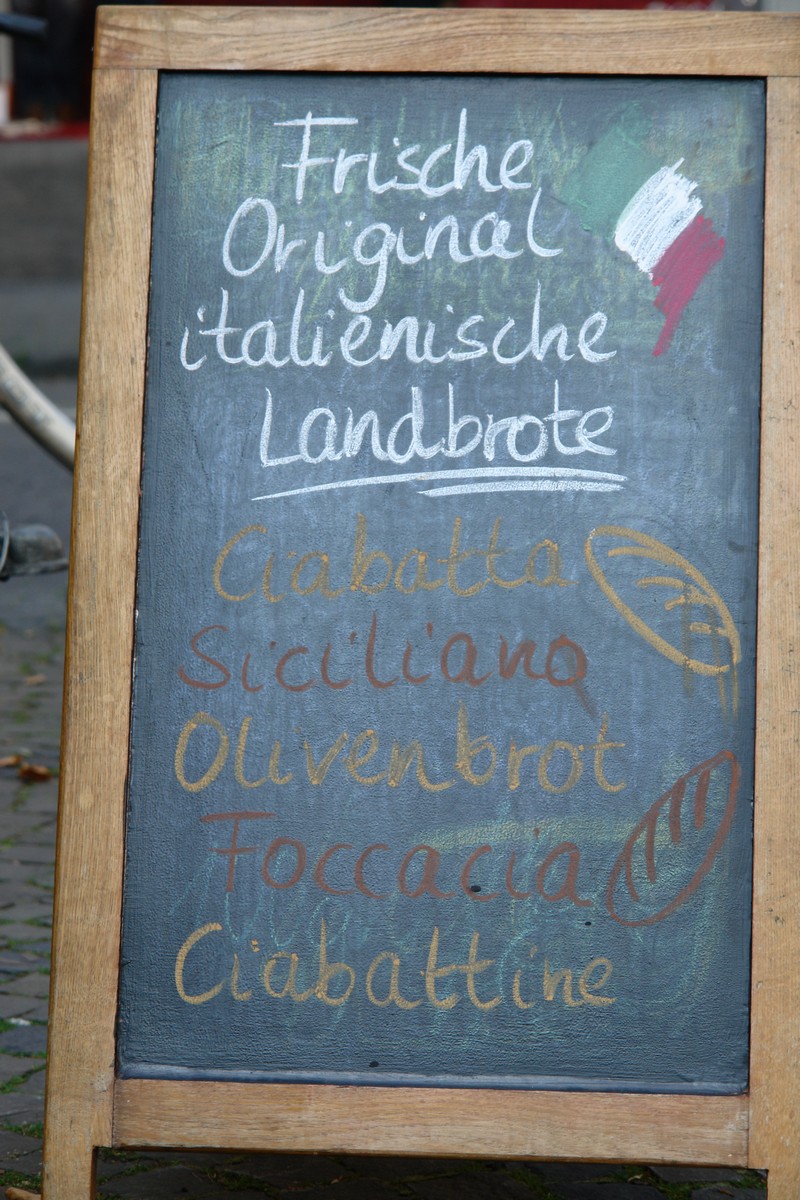 Frische
Original
italienische
Landbrote
Ciabatta
Siciliana
Olivenbrot
Foccacia
Ciabattine